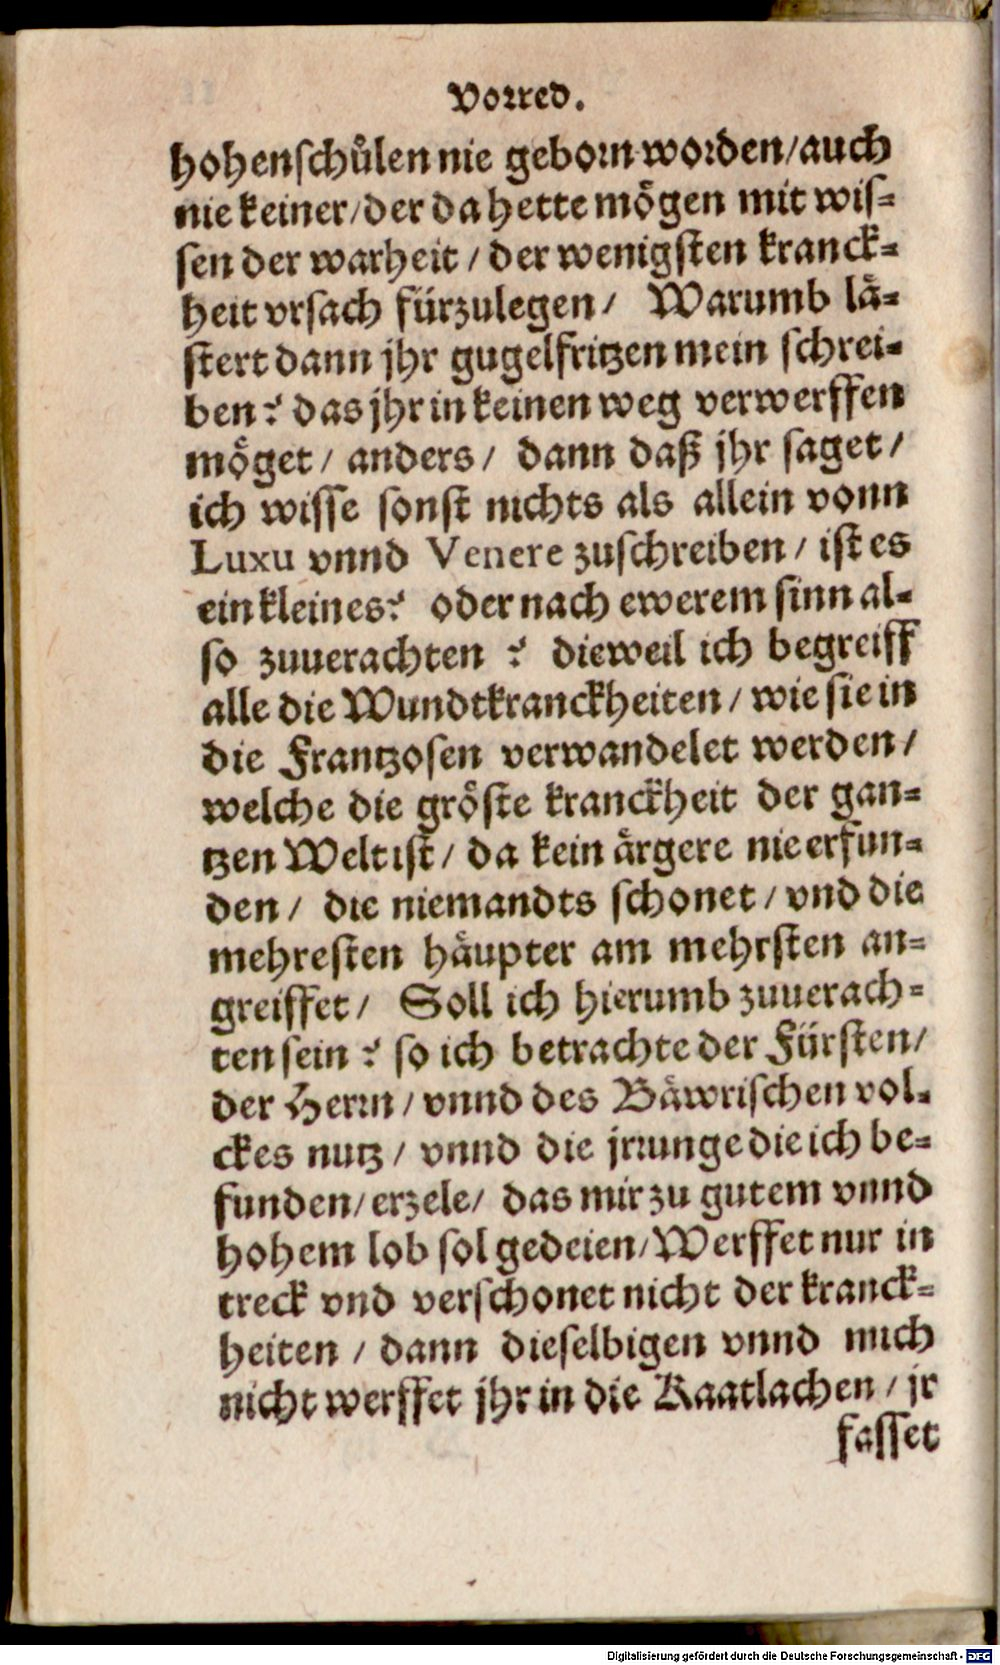 Vorred.
hohenschůlen nie geborn worden/auch
nie keiner/der da hette mögen mit wis=
sen der warheit / der wenigsten kranck=
heit vrsach fürzulegen / Warumb lä=
stert dann jhr gugelfritzen mein schrei=
ben? das jhr in keinen weg verwerffen
möget / anders / dann daß jhr saget /
ich wisse sonst nichts als allein vonn
Luxu vnnd Venere zuschreiben / ist es
ein kleines? oder nach ewerem sinn al=
so zuuerachten ? dieweil ich begreiff
alle die Wundtkranckheiten / wie sie in
die Frantzosen verwandelet werden /
welche die gröste kranckheit der gan=
tzen Welt ist / da kein ärgere nie erfun=
den / die niemandts schonet / vnd die
mehresten häupter am mehrsten an=
greiffet / Soll ich hierumb zuuerach=
ten sein ? so ich betrachte der Fürsten /
der Herrn / vnnd des Bäwrischen vol=
ckes nutz / vnnd die jrrunge die ich be=
funden / erzele / das mir zu gutem vnnd
hohem lob sol gedeien / Werffet nur in
treck vnd verschonet nicht der kranck=
heiten / dann dieselbigen vnnd mich
nicht werffet jhr in die Kaatlachen / jr
fasset
Digitalisierung gefördert durch die Deutsche Forschungsgemeinschaft - DFG